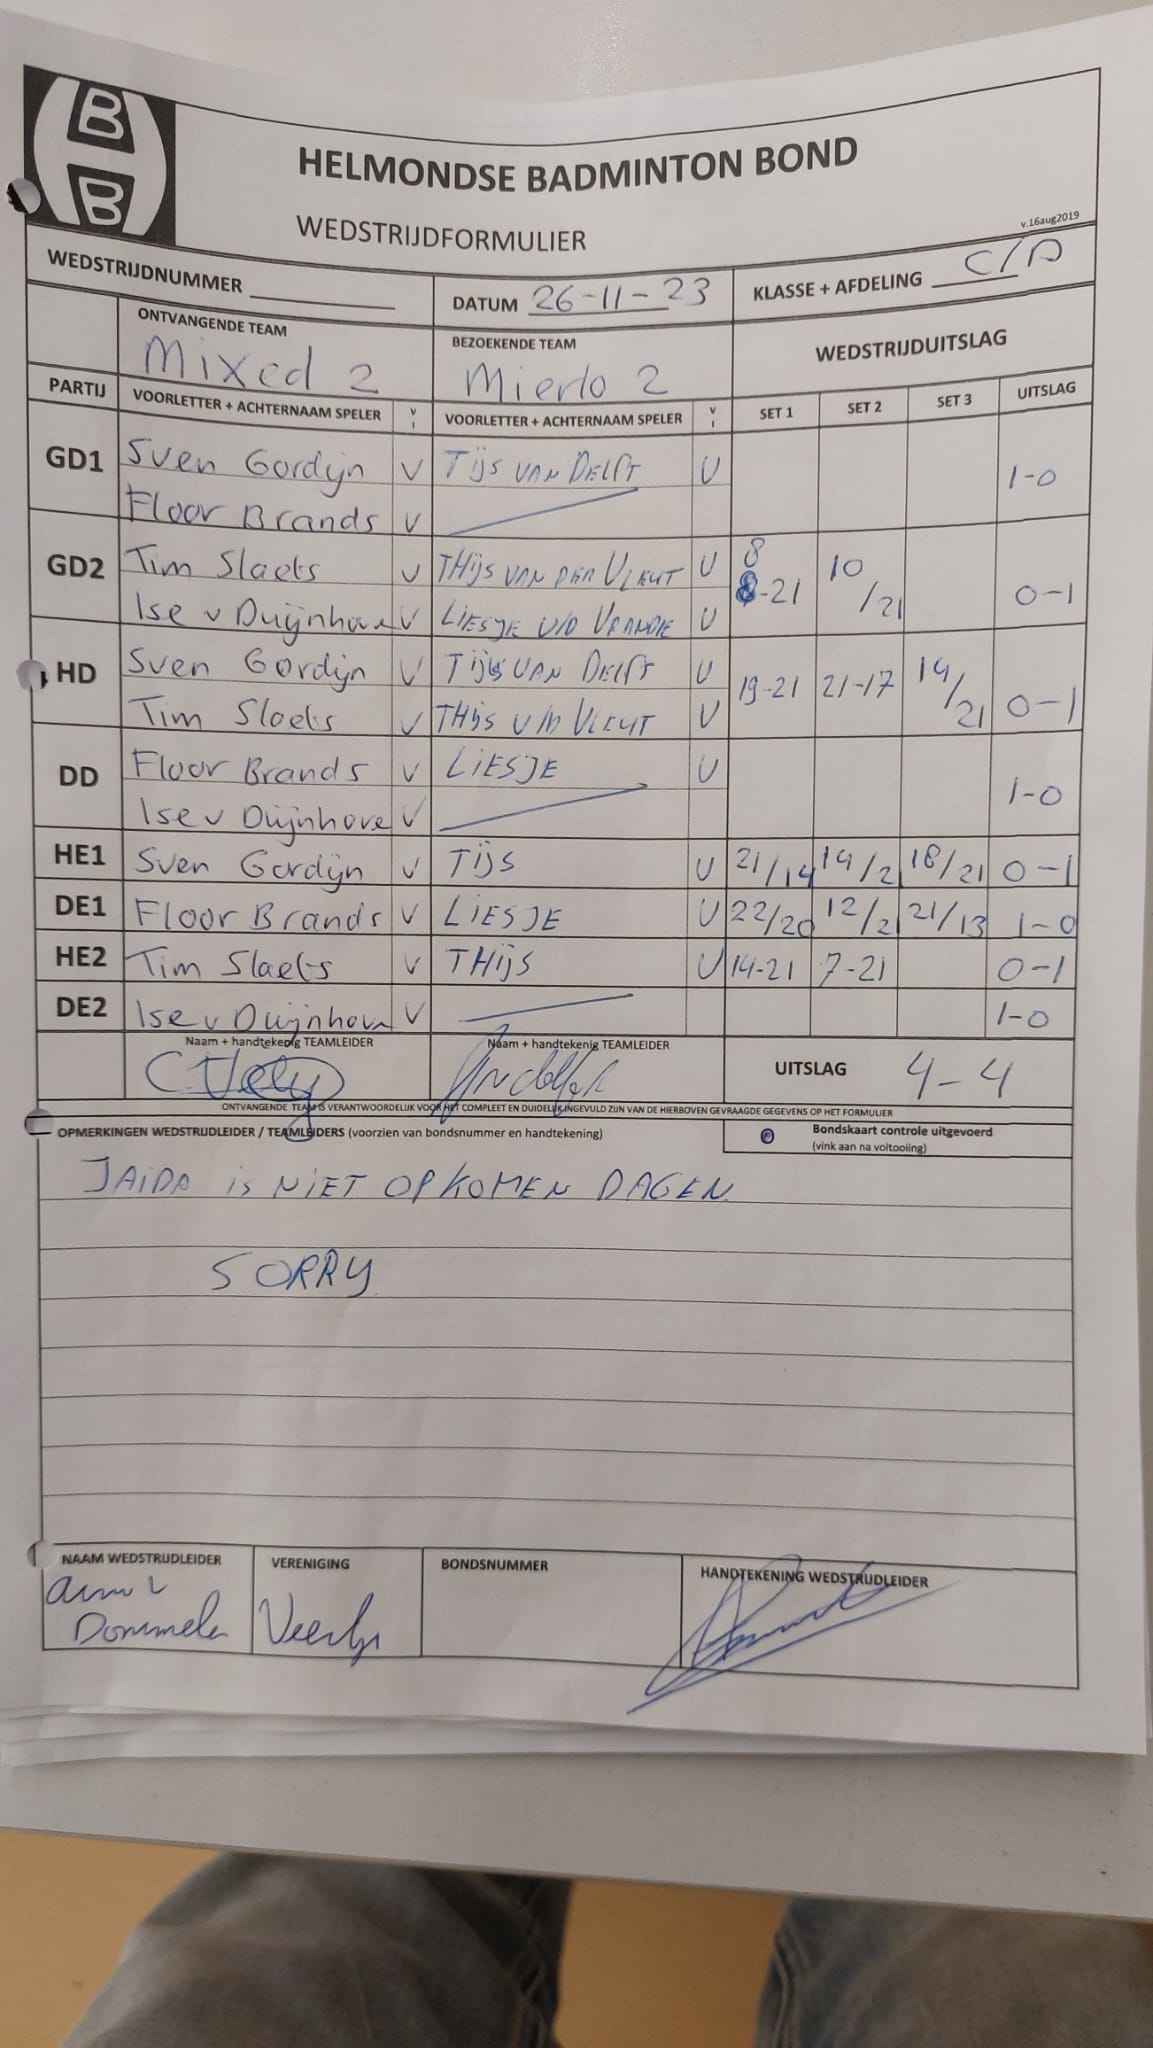 HELMONDSE BADMINTON BOND
WEDSTRIJDFORMULIER
v.16aug2019
WEDSTRIJDNUMMER
DATUM 26-11-23
KLASSE + AFDELING C/A
ONTVANGENDE TEAM
Mixed 2
BEZOEKENDE TEAM
Mierlo 2
WEDSTRIJDUITSLAG
PARTIJ VOORLETTER + ACHTERNAAM SPELER V I VOORLETTER + ACHTERNAAM SPELER V I SET 1 SET 2 SET 3 UITSLAG
GD1 Sven Gordijn V TIJS VAN DELFT V 1-0
Floor Brands V
GD2 Tim Slaets V THIJS VAN DER VLEUT V 8-21 10/21 0-1
Ise v Duijnhoven V LIESJE V/D V
HD Sven Gordijn V TIJS VAN DELFT V 19-21 21-17 14/21 0-1
Tim Slaets V THIJS V/D VLEUT V
DD Floor Brands V LIESJE V 1-0
Ise v Duijnhove V
HE1 Sven Gordijn V TIJS V 21/14 14/2 18/21 0-1
DE1 Floor Brands V LIESJE V 22/20 12/21 21/13 1-0
HE2 Tim Slaets V THIJS V 14-21 7-21 0-1
DE2 Ise v Duijnhoven V 1-0
Naam + handtekenig TEAMLEIDER Naam + handtekenig TEAMLEIDER UITSLAG 4-4
ONTVANGENDE TEAM IS VERANTWOORDELIJK VOOR HET COMPLEET EN DUIDELIJK INGEVULD ZIJN VAN DE HIERBOVEN GEVRAAGDE GEGEVENS OP HET FORMULIER
OPMERKINGEN WEDSTRIJDLEIDER / TEAMLEIDERS (voorzien van bondsnummer en handtekening)
Bondskaart controle uitgevoerd
(vink aan na voltooiing)
JAIDA iS NIET OPKOMEN DAGEN
SORRY
NAAM WEDSTRIJDLEIDER VERENIGING BONDSNUMMER HANDTEKENING WEDSTRIJDLEIDER
Dommelen